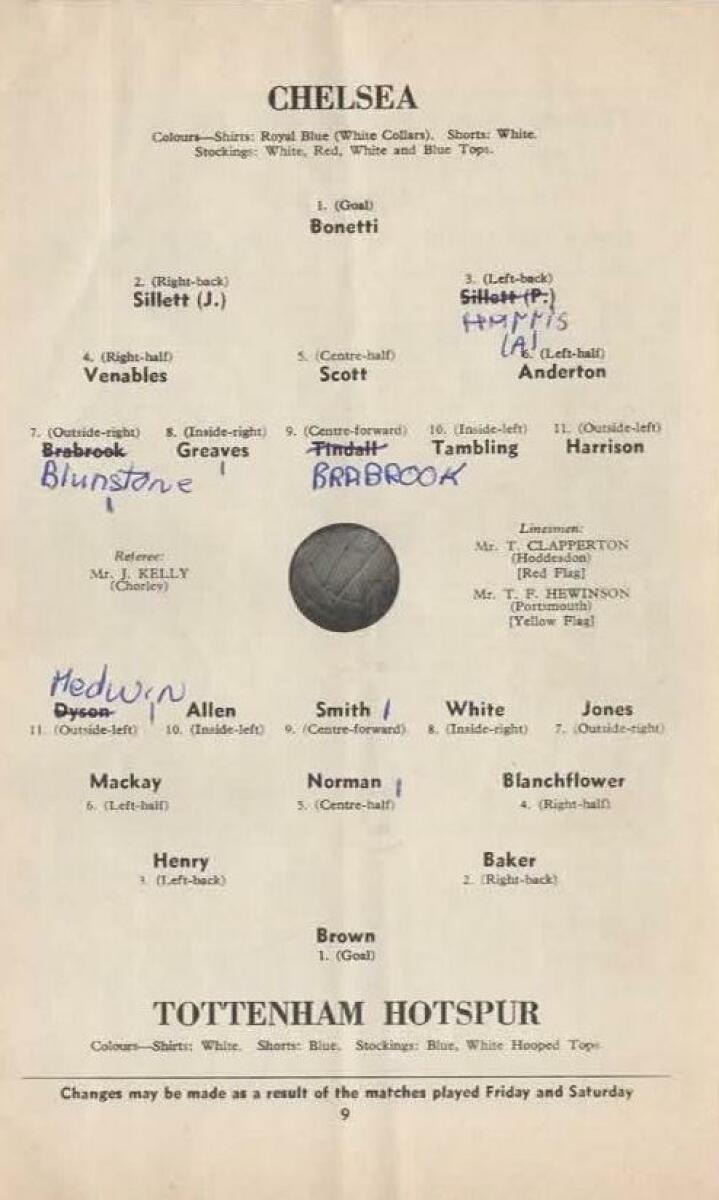 CHELSEA
Colours—Shirts: Royal Blue (White Collars). Shorts: White.
Stockings: White, Red, White and Blue Tops.
1. (Goal)
Bonetti
2. (Right-back) 3. (Left-back)
Sillett (J.) Sillett (P.)
HARRIS
(A)
4. (Right-half) 5. (Centre-half) 6. (Left-half)
Venables Scott Anderton
7. (Outside-right) 8. (Inside-right) 9. (Centre-forward) 10. (Inside-left) 11. (Outside-left)
Brabrook Greaves Tindall Tambling Harrison
Blunstone BRABROOK
Referee:
Mr. J. KELLY
(Chorley)
Linesmen:
Mr. T. CLAPPERTON
(Hoddesdon)
[Red Flag]
Mr. T. F. HEWINSON
(Portsmouth)
[Yellow Flag]
Medwin
Dyson Allen Smith White Jones
11. (Outside-left) 10. (Inside-left) 9. (Centre-forward) 8. (Inside-right) 7. (Outside-right)
Mackay Norman Blanchflower
6. (Left-half) 5. (Centre-half) 4. (Right-half)
Henry Baker
3. (Left-back) 2. (Right-back)
Brown
1. (Goal)
TOTTENHAM HOTSPUR
Colours—Shirts: White. Shorts: Blue. Stockings: Blue, White Hooped Tops.
Changes may be made as a result of the matches played Friday and Saturday
9